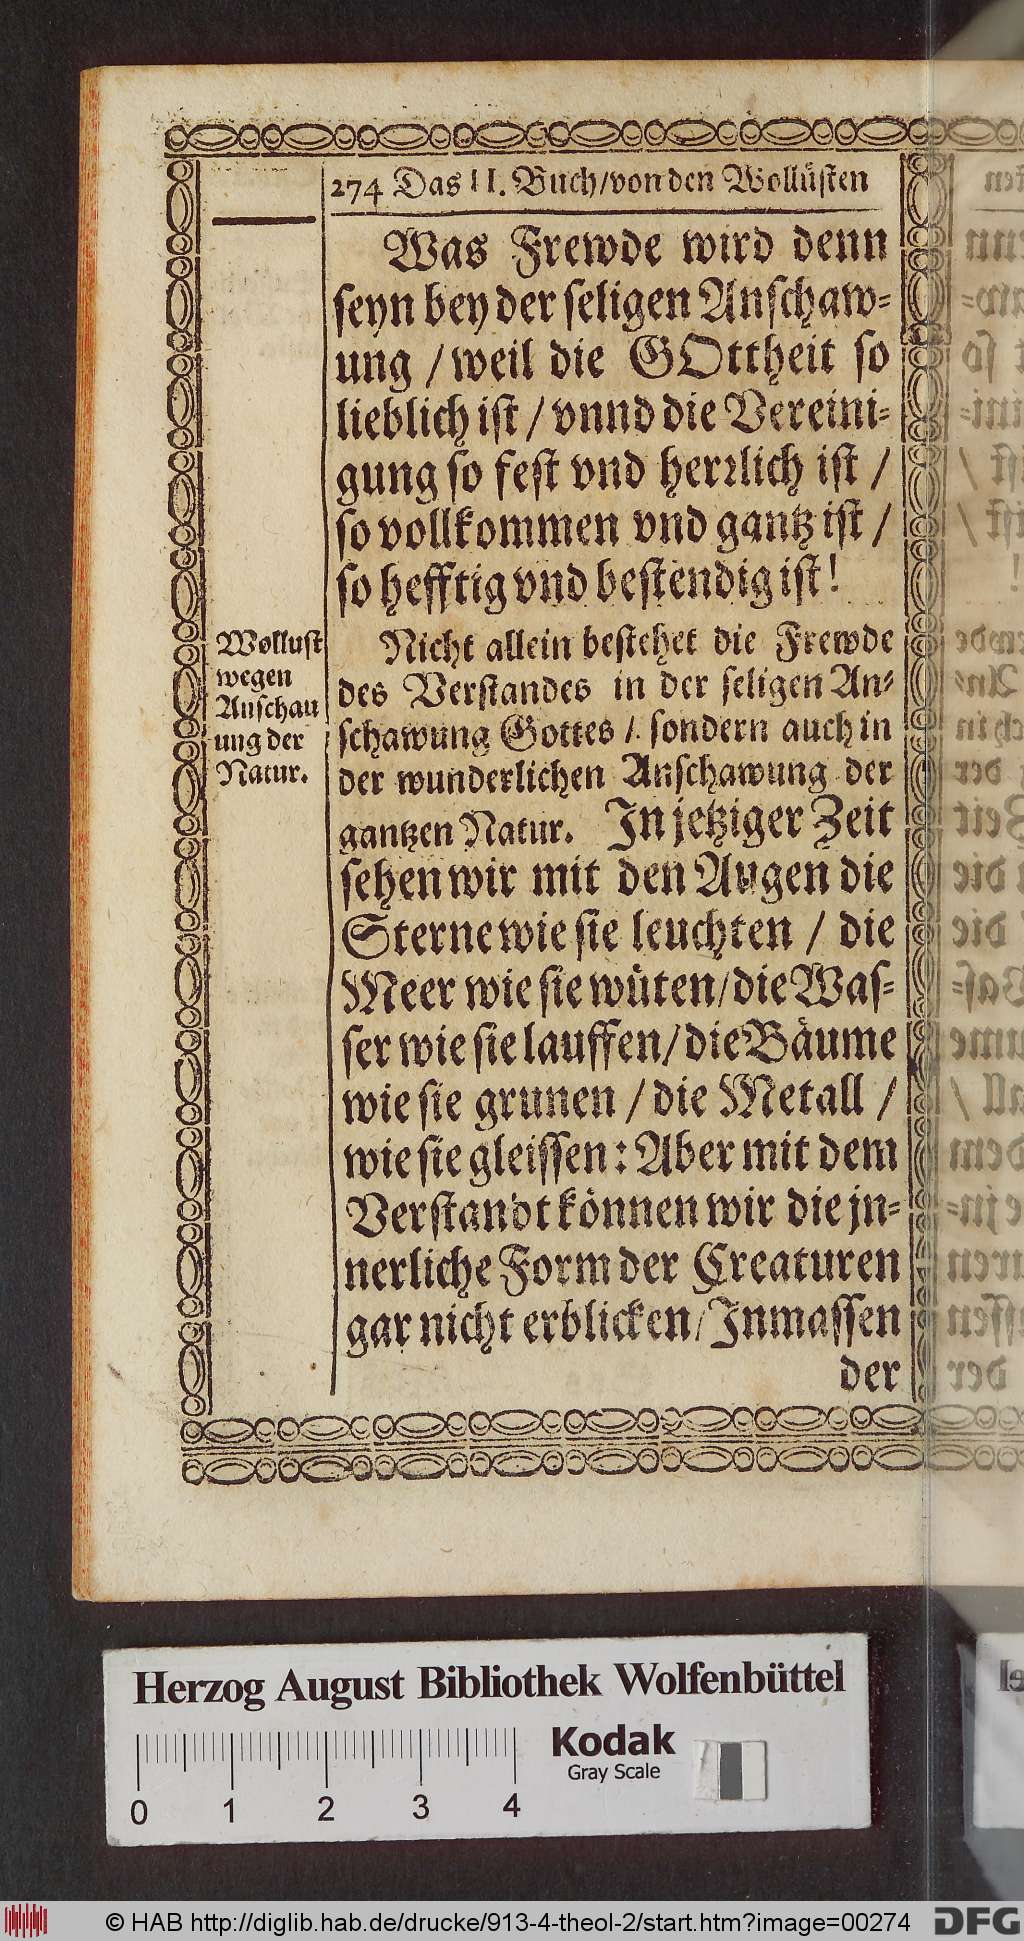 274 Das II. Buch/von den Wollüsten
Was Frewde wird denn
seyn bey der seligen Anschaw-
ung / weil die GOttheit so
lieblich ist / vnnd die Vereini-
gung so fest vnd herrlich ist /
so vollkommen vnd gantz ist /
so hefftig vnd bestendig ist!
Wollust
wegen
Anschau
ung der
Natur.
Nicht allein bestehet die Frewde
des Verstandes in der seligen An-
schawung Gottes / sondern auch in
der wunderlichen Anschawung der
gantzen Natur. In jetziger Zeit
sehen wir mit den Augen die
Sterne wie sie leuchten / die
Meer wie sie wüten/die Was-
ser wie sie lauffen/die Bäume
wie sie grunen / die Metall /
wie sie gleissen: Aber mit dem
Verstandt können wir die jn-
nerliche Form der Creaturen
gar nicht erblicken/Inmassen
der
Herzog August Bibliothek Wolfenbüttel
Kodak
Gray Scale
0 1 2 3 4
© HAB http://diglib.hab.de/drucke/913-4-theol-2/start.htm?image=00274
DFG